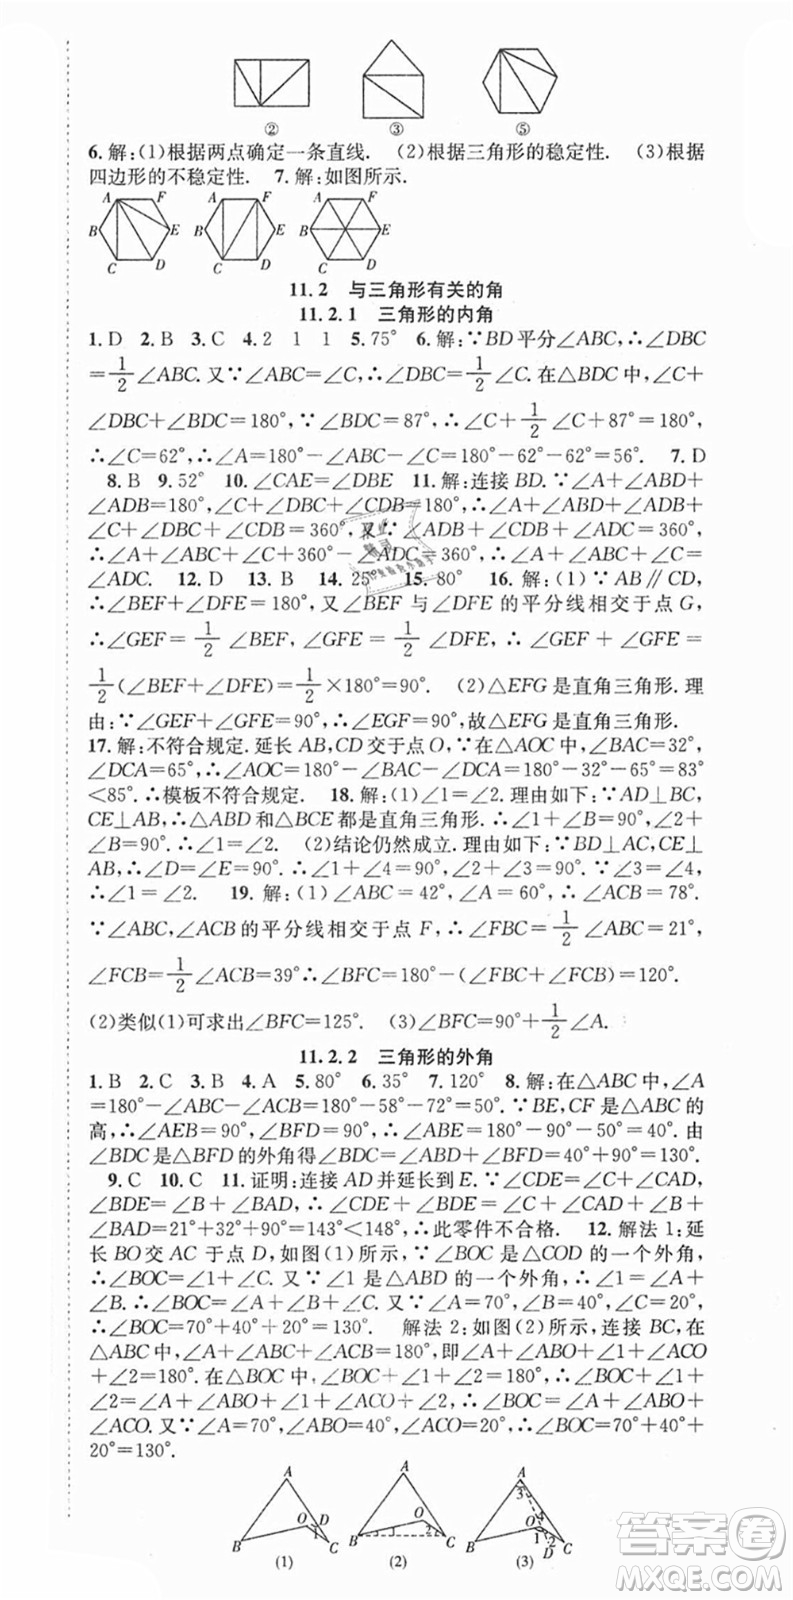 ② ③ ⑤
6.解:(1)根据两点确定一条直线. (2)根据三角形的稳定性. (3)根据
四边形的不稳定性. 7.解:如图所示.
A F A F A F
B E B E B E
C D C D C D
11.2 与三角形有关的角
11.2.1 三角形的内角
1.D 2.B 3.C 4.2 1 1 5.75° 6.解:∵BD平分∠ABC,∴∠DBC
=1/2∠ABC.又∵∠ABC=∠C,∴∠DBC=1/2∠C.在△BDC中,∠C+
∠DBC+∠BDC=180°,∵∠BDC=87°,∴∠C+1/2∠C+87°=180°,
∴∠C=62°,∴∠A=180°-∠ABC-∠C=180°-62°-62°=56°. 7.D
8.B 9.52° 10.∠CAE=∠DBE 11.解:连接BD.∵∠A+∠ABD+
∠ADB=180°,∠C+∠DBC+∠CDB=180°,∴∠A+∠ABD+∠ADB+
∠C+∠DBC+∠CDB=360°,又∵∠ABC=∠ABD+∠DBC,
∴∠A+∠ABC+∠C+∠ADC=360°,∴∠A+∠ABC+∠C=360°-
∠ADC. 12.D 13.B 14.25° 15.80° 16.解:(1)∵AB∥CD,
∴∠BEF+∠DFE=180°,又∠BEF与∠DFE的平分线相交于点G,
∴∠GEF=1/2∠BEF,∠GFE=1/2∠DFE,∴∠GEF+∠GFE=
1/2(∠BEF+∠DFE)=1/2×180°=90°. (2)△EFG是直角三角形.理
由:∵∠GEF+∠GFE=90°,∴∠EGF=90°,故△EFG是直角三角形.
17.解:不符合规定.延长AB,CD交于点O,∵在△AOC中,∠BAC=32°,
∠DCA=65°,∴∠AOC=180°-∠BAC-∠DCA=180°-32°-65°=83°
<85°.∴模板不符合规定. 18.解:(1)∠1=∠2.理由如下:∵AD⊥BC,
CE⊥AB,∴△ABD和△BCE都是直角三角形.∴∠1+∠B=90°,∠2+
∠B=90°.∴∠1=∠2. (2)结论仍然成立.理由如下:∵BD⊥AC,CE⊥
AB,∴∠D=∠E=90°.∴∠1+∠4=90°,∠2+∠3=90°.∵∠3=∠4,
∴∠1=∠2. 19.解:(1)∠ABC=42°,∠A=60°,∴∠ACB=78°.
∵∠ABC,∠ACB的平分线相交于点F,∴∠FBC=1/2∠ABC=21°,
∠FCB=1/2∠ACB=39°∴∠BFC=180°-(∠FBC+∠FCB)=120°.
(2)类似(1)可求出∠BFC=125°. (3)∠BFC=90°+1/2∠A.
11.2.2 三角形的外角
1.B 2.C 3.C 4.A 5.80° 6.35° 7.120° 8.解:在△ABC中,∠A
=180°-∠ABC-∠ACB=180°-58°-72°=50°.∵BE,CF是△ABC的
高,∴∠AEB=90°,∠BFD=90°,∴∠ABE=180°-90°-50°=40°.由
∠BDC是△BFD的外角得∠BDC=∠ABE+∠BFD=40°+90°=130°.
9.C 10.C 11.证明:连接AD并延长到E.∵∠CDE=∠C+∠CAD,
∠BDE=∠B+∠BAD,∴∠CDE+∠BDE=∠C+∠CAD+∠B+
∠BAD=21°+32°+90°=143°<148°,∴此零件不合格. 12.解法1:延
长BO交AC于点D,如图(1)所示,∵∠BOC是△COD的一个外角,
∴∠BOC=∠1+∠C.又∵∠1是△ABD的一个外角,∴∠1=∠A+
∠B.∴∠BOC=∠A+∠B+∠C.又∵∠A=70°,∠B=40°,∠C=20°,
∴∠BOC=70°+40°+20°=130°. 解法2:如图(2)所示,连接BC,在
△ABC中,∠A+∠ABC+∠ACB=180°,即∠A+∠ABO+∠1+∠2+
∠ACO=180°,在△BOC中,∠BOC+∠1+∠2=180°,∴∠BOC+∠1+
∠2=∠A+∠ABO+∠1+∠2+∠ACO.∴∠BOC=∠A+∠ABO+
∠ACO.又∵∠A=70°,∠ABO=40°,∠ACO=20°,∴∠BOC=70°+40°+
20°=130°.
A A A
O D O O
B 1 C B 1 2 C B 3 1 2 D C
(1) (2) (3)
答案圈
MXQE.COM